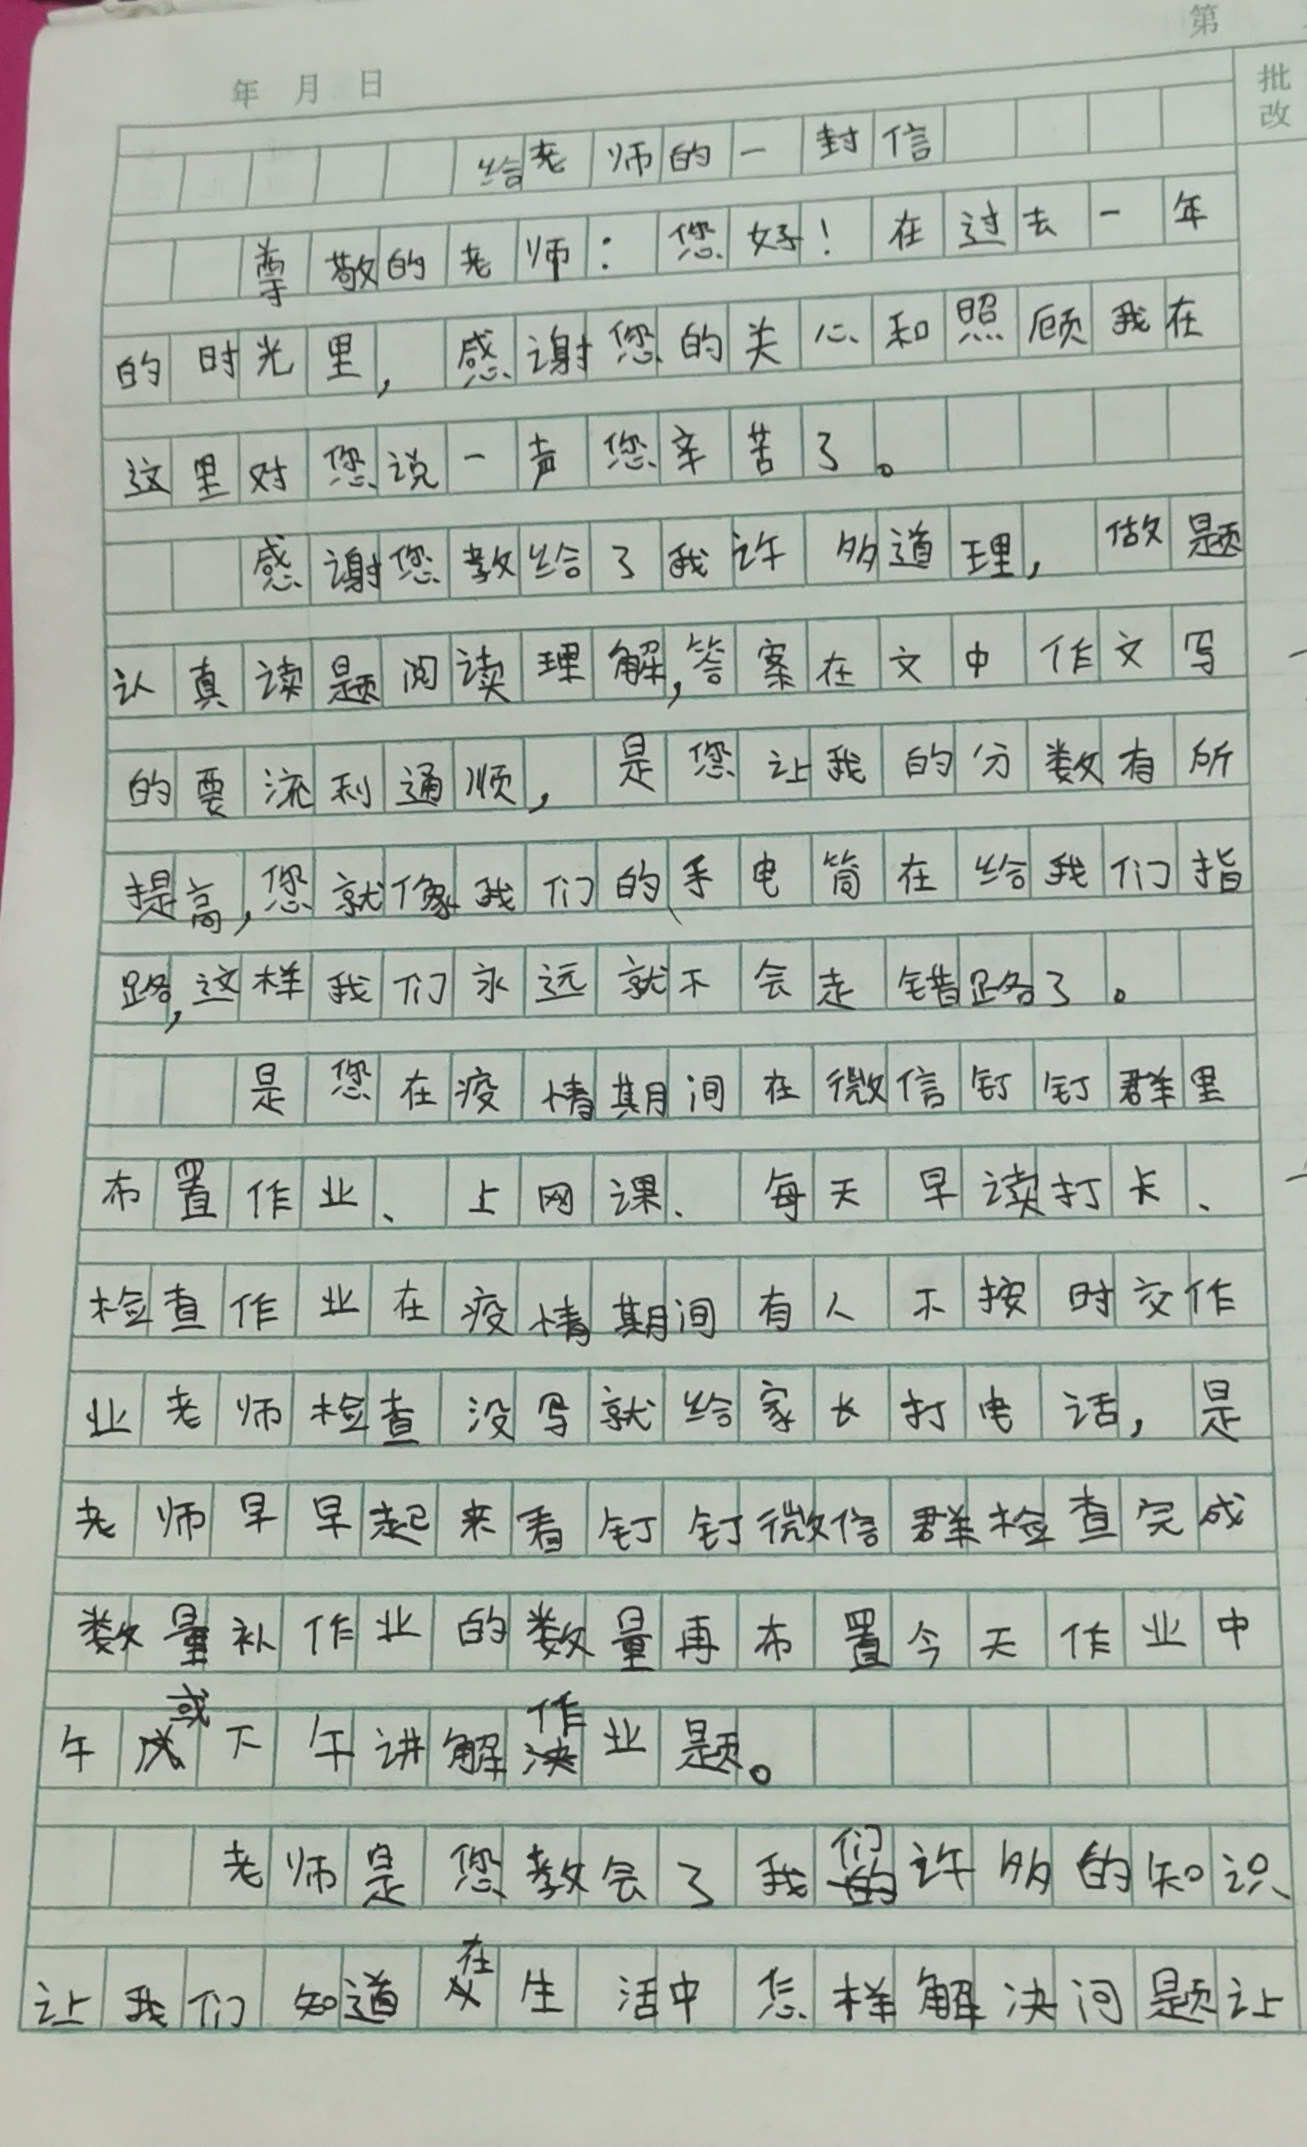 第
年 月 日
批改
给老师的一封信
尊敬的老师：您好！在过去一年
的时光里，感谢您的关心和照顾我在
这里对您说一声您辛苦了。
感谢您教给了我许多道理，做题
认真读题阅读理解，答案在文中作文写
的要流利通顺，是您让我的分数有所
提高，您就像我们的手电筒在给我们指
路，这样我们永远就不会走错路了。
是您在疫情期间在微信钉钉群里
布置作业、上网课、每天早读打卡、
检查作业在疫情期间有人不按时交作
业老师检查没写就给家长打电话，是
老师早早起来看钉钉微信群检查完成
数量补作业的数量再布置今天作业中
午或下午讲解作业题。
老师是您教会了我们许多的知识
让我们知道在生活中怎样解决问题让